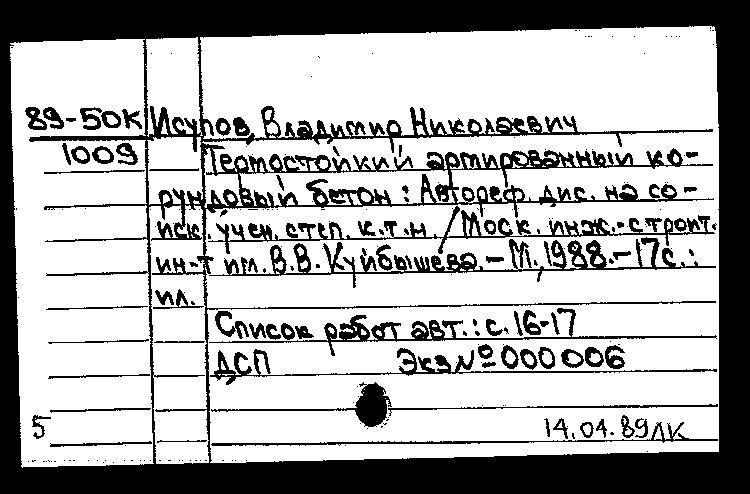 89-50К Исупов, Владимир Николаевич
1009 Термостойкий армированный ко-
рундовый бетон : Автореф. дис. на со-
иск. учен. степ. к.т.н. / Моск. инж.-строит.
ин-т им. В.В. Куйбышева. - М., 1988. - 17с. :
ил.
Список работ авт. : с. 16-17
ДСП Экз № 000006
5 14.04.89 ЛК